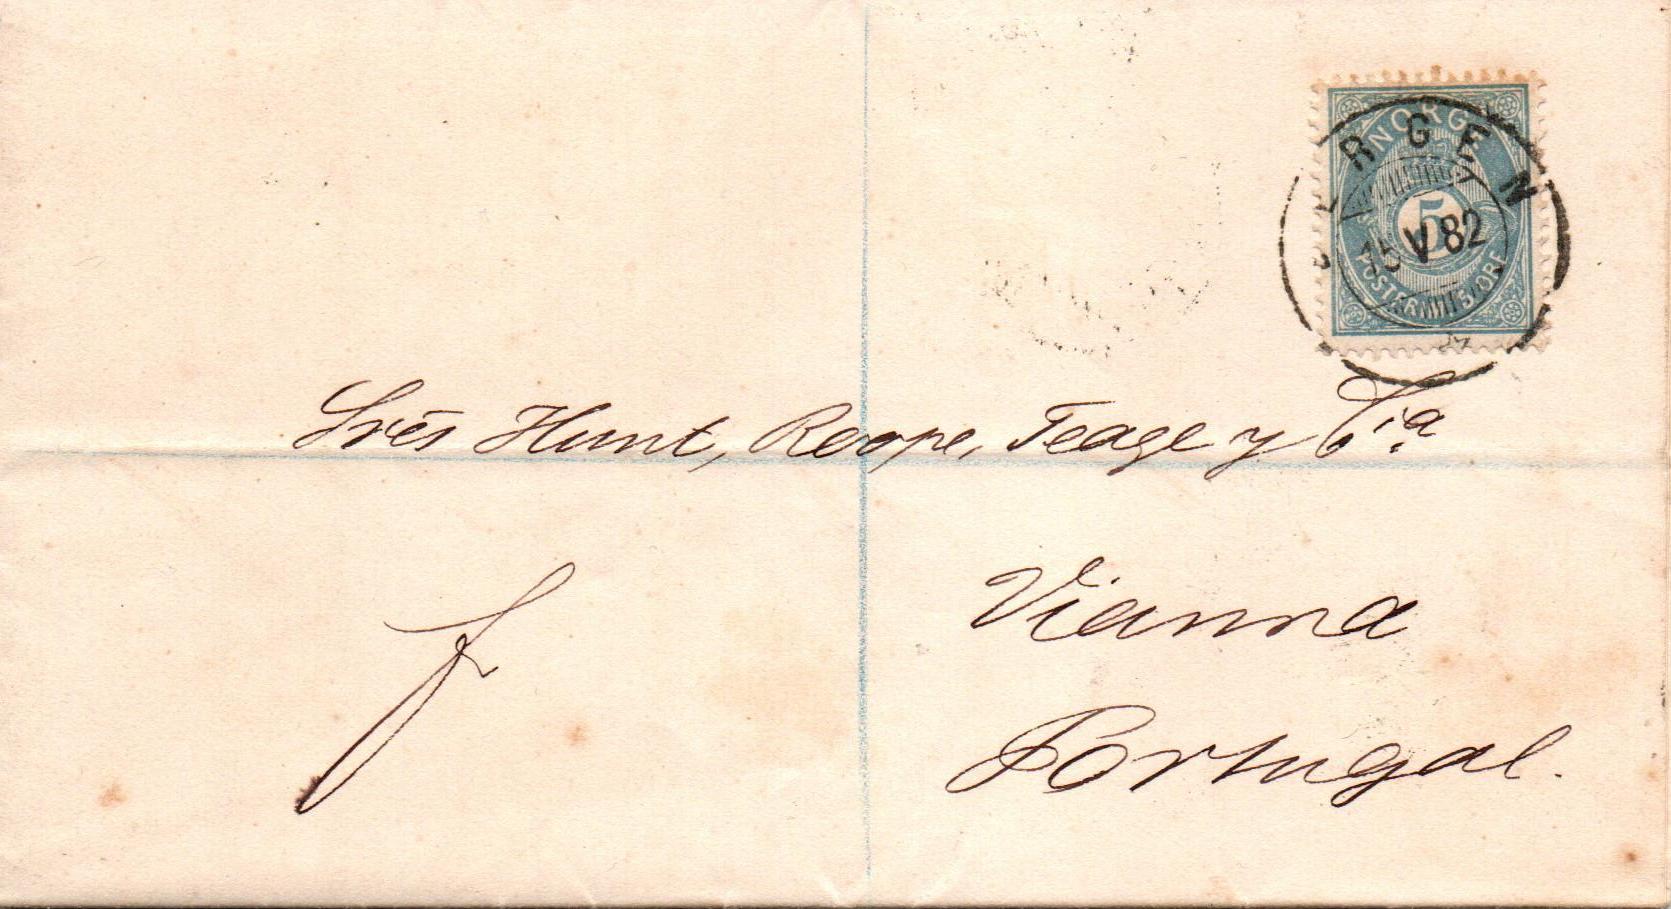 NORGE
5
POSTFRIM. 5 ØRE
BERGEN
15 V 82
Srēs Hunt, Roope, Teage y Cia
Vianna
Portugal.